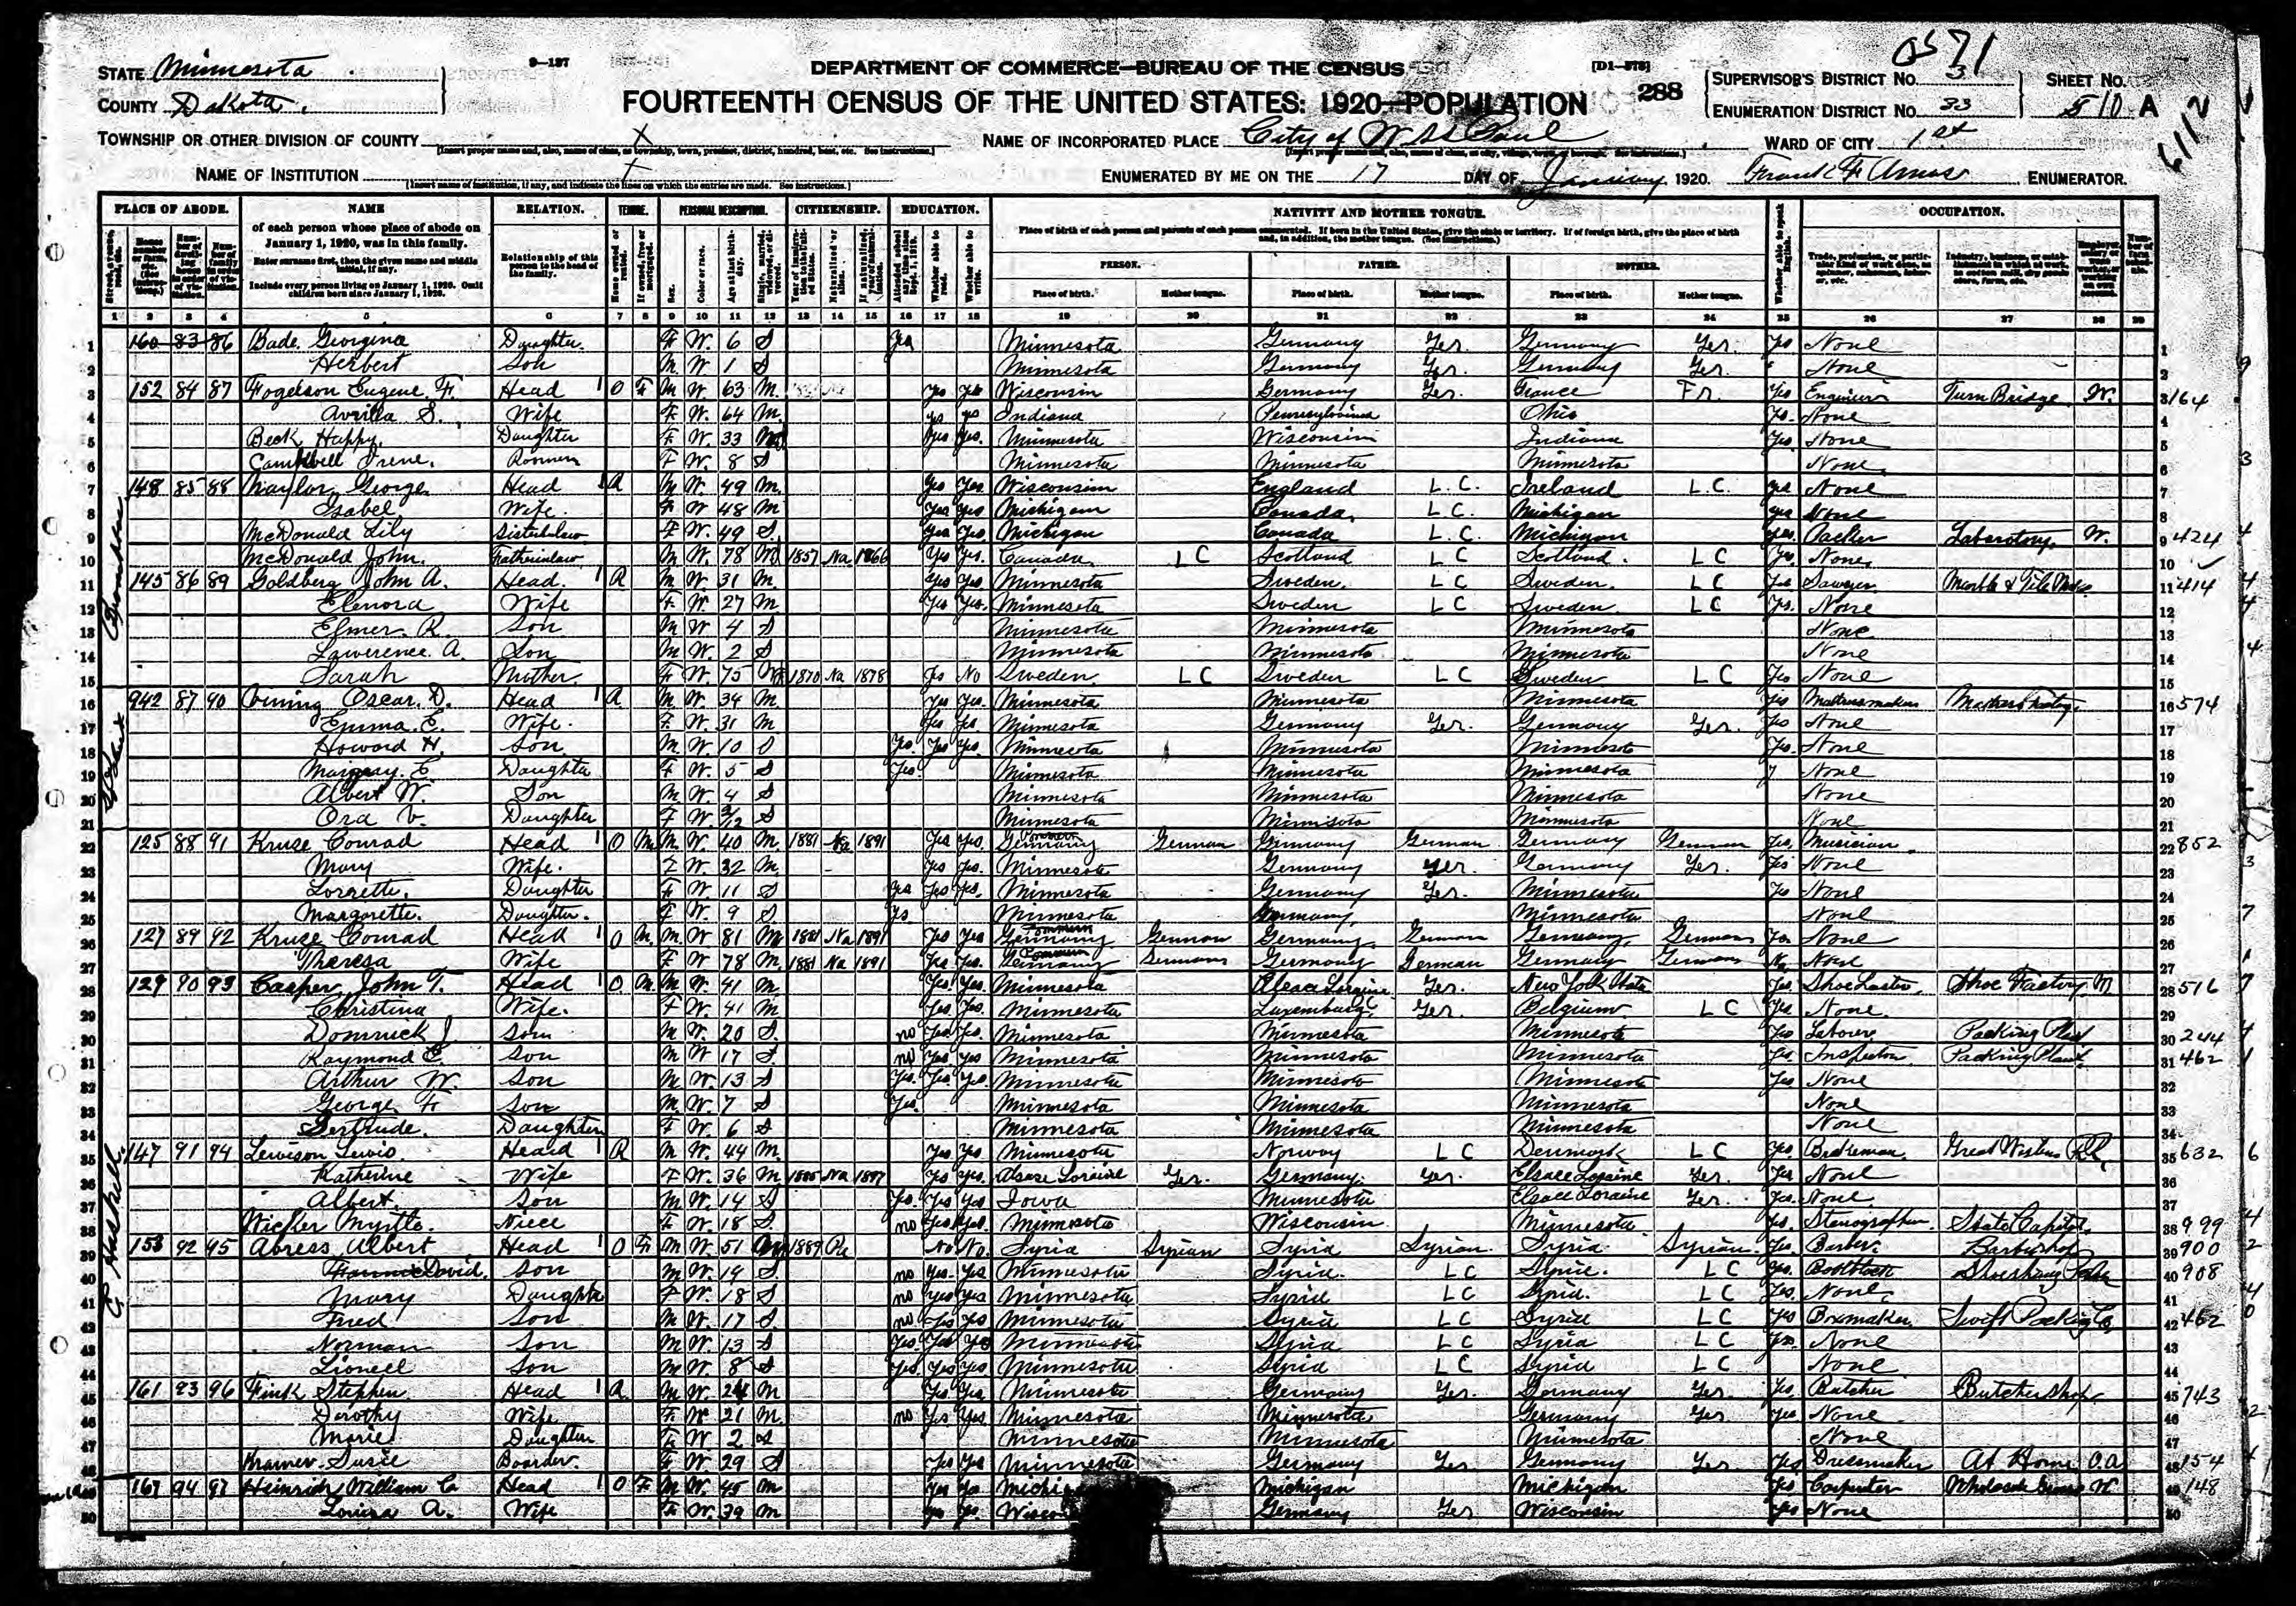 STATE Minnesota
COUNTY Dakota
9-137
DEPARTMENT OF COMMERCE—BUREAU OF THE CENSUS
[D1-578]
FOURTEENTH CENSUS OF THE UNITED STATES: 1920—POPULATION
288
SUPERVISOR'S DISTRICT NO. 3
ENUMERATION DISTRICT NO. 33
SHEET NO.
10 A
6112
TOWNSHIP OR OTHER DIVISION OF COUNTY X
NAME OF INCORPORATED PLACE City of W St Paul
WARD OF CITY 1st
NAME OF INSTITUTION X
ENUMERATED BY ME ON THE 17 DAY OF January 1920. Frank F ENUMERATOR.
PLACE OF ABODE. NAME RELATION. TENURE. PERSONAL DESCRIPTION. CITIZENSHIP. EDUCATION. NATIVITY AND MOTHER TONGUE. OCCUPATION.
of each person whose place of abode on January 1, 1920, was in this family.
Enter surname first, then the given name and middle initial, if any.
Include every person living on January 1, 1920. Omit children born since January 1, 1920.
Relationship of this person to the head of the family.
PERSON. FATHER. MOTHER.
Place of birth. Mother tongue. Place of birth. Mother tongue. Place of birth. Mother tongue.
1 2 3 4 5 6 7 8 9 10 11 12 13 14 15 16 17 18 19 20 21 22 23 24 25 26 27 28 29
1 160 83 86 Bade Georgina Daughter F W. 6 S Yes Minnesota Germany Ger. Germany Ger. Yes None
2 Herbert Son M W. 1 S Minnesota Germany Ger. Germany Ger. None
3 152 84 87 Fogelson Eugene F. Head 1 O F M W. 63 M. Yes Yes Wisconsin Germany Ger. France Fr. Yes Engineer Turn Bridge W. 164
4 Avrilla S. Wife F W. 64 M. Yes Yes Indiana Pennsylvania Ohio Yes None
5 Beck Happy. Daughter F W. 33 Yes Yes. Minnesota Wisconsin Indiana Yes None
6 Campbell Irene. Roomer F W. 8 S Minnesota Minnesota Minnesota None
7 148 85 88 Naylor George Head 1 R M W. 49 M. Yes Yes Wisconsin England L.C. Ireland L.C. Yes None
8 Isabel Wife. F W 48 M Yes Yes Michigan Canada L.C. Michigan Yes None
9 McDonald Lily Sisterlaw F W. 49 S. Yes Yes Michigan Canada L.C. Michigan Yes. Packer Laboratory. W. 424
10 McDonald John. Fatherinlaw M W. 78 1857 Na 1866 Yes Yes. Canada LC Scotland LC Scotland. LC Yes None.
11 145 86 89 Goldberg John A. Head. 1 R M W. 31 M. Yes Yes. Minnesota Sweden. LC Sweden. LC Yes Sawyer Marble & Tile 414
12 Elenora Wife F W. 27 M Yes Yes. Minnesota Sweden LC Sweden. LC Yes. None
13 Elmer. R. Son M W 4 S Minnesota Minnesota Minnesota None
14 Lawerence. A. Son M W. 2 S Minnesota Minnesota Minnesota None
15 Sarah Mother. F W. 75 1870 Na 1878 Yes No Sweden LC Sweden LC Sweden LC Yes None
16 942 87 90 Vining Oscar. D. Head 1 R M W. 34 M. Yes Yes. Minnesota Minnesota Minnesota Yes Mattressmaker 574
17 Emma. E. Wife. F W. 31 M Yes Yes. Minnesota Germany Ger. Germany Ger. Yes None
18 Howard H. Son M W. 10 S Yes. Yes Yes. Minnesota Minnesota Minnesota Yes. None
19 E. Daughter F W. 5 S Yes. Minnesota Minnesota Minnesota None
20 Albert W. Son M W. 4 S Minnesota Minnesota Minnesota None
21 Ora V. Daughter F W. S Minnesota Minnesota Minnesota None
22 125 88 91 Kruse Conrad Head 1 O M M W. 40 M. 1881 Na 1891 Yes Yes. Germany German Germany German Germany German Yes Musician. 852
23 Mary Wife. F W. 32 M. Yes Yes. Minnesota Germany Ger. Germany Ger. Yes None
24 Lorrette. Daughter F W. 11 S Yes Yes Yes. Minnesota Germany Ger. Minnesota Yes None
25 Margarette. Daughter. F W. 9 S. Yes Minnesota Germany Minnesota None
26 127 89 92 Kruse Conrad Head 1 O M. M. W 81 M 1881 Na 1891 Yes Yes Germany German Germany. German Germany. German Yes None
27 Theresa Wife F W. 78 M. 1881 Na 1891 Yes Yes. Germany German Germany German Germany German No None
28 129 90 93 Casper John T. Head 1 O M. M W. 41 M. Yes Yes. Minnesota Ger. New York State Yes Shoe Laster. Shoe Factory. W 516
29 Christina Wife. F W. 41 M Yes Yes. Minnesota Luxemburg Ger. Belgium LC Yes None.
30 Domnick J Son M W. 20 S. no Yes Yes. Minnesota Minnesota Minnesota Yes Laborer Packing Plant 244
31 Raymond E. Son M W 17 S no Yes Yes Minnesota Minnesota Minnesota Yes Inspector Packing Plant 462
32 Arthur W. Son M W. 13 S Yes. Yes Yes. Minnesota Minnesota Minnesota Yes None
33 George F Son M. W. 7 S Yes. Minnesota Minnesota Minnesota None
34 Gertrude. Daughter F W. 6 S Minnesota Minnesota Minnesota None
35 147 91 94 Lewison Lewis. Head 1 R M W. 44 M. Yes Yes. Minnesota Norway LC Denmark LC Yes Brakeman. Great Western RR. 632
36 Katherine Wife F W. 36 M 1885 Na 1897 Yes Yes. Alsase Loraine Ger. Germany. Ger. Elsace Loraine Ger. Yes None
37 Albert. Son M W. 14 S Yes. Yes Yes Iowa Minnesota Elsace Loraine Ger. Yes. None
38 Wicker Myrtle. Niece F W. 18 S. no Yes Yes. Minnesota Wisconsin Minnesota Yes. Stenographer. State Capitol. 999
39 153 92 95 Abress Albert Head 1 O F M W. 51 1889 No No. Syria Syrian Syria Syrian. Syria Syrian. Yes. Barber. Barbershop 900
40 David. Son M W. 19 S no Yes. Yes Minnesota Syria. LC Syria. LC Yes. Bootblack 908
41 Mary Daughter F W. 18 S no Yes Yes Minnesota Syria LC Syria. LC Yes. None.
42 Fred Son M W. 17 S no Yes Yes Minnesota Syria LC Syria LC Yes Boxmaker Swift Packing Co 462
43 Norman Son M W. 13 S Yes. Yes Yes Minnesota Syria LC Syria LC Yes. None
44 Lionell Son M W. 8 S Yes. Yes Yes Minnesota Syria LC Syria LC None
45 161 93 96 Fink Stephen Head 1 R M W. 24 M Yes Yes Minnesota Germany Ger. Germany Ger. Yes Butcher Butcher Shop. 743
46 Dorothy Wife F W 21 M. no Yes Yes. Minnesota Minnesota. Germany Ger Yes None
47 Marie Daughter F W 2 S Minnesota Minnesota Minnesota None
48 Kramer Susie Boarder. F W 29 S Yes Yes Minnesota Germany Ger Germany Ger Yes Dressmaker At Home O.A 154
49 167 94 97 Heinrich William C Head 1 O F M W. 45 M Yes Yes Michigan Michigan Yes Carpenter Wholesale W 148
50 Louisa A. Wife F W. 39 M Yes Yes. Germany Ger Wisconsin Yes None